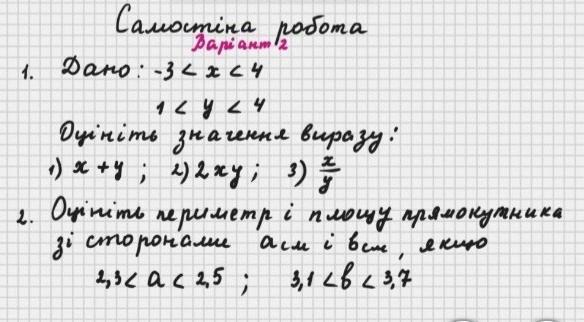 Самостіна робота
Варіант 2
1. Дано: -3 < x < 4
1 < y < 4
Оцініть значення виразу:
1) x + y ; 2) 2xy ; 3) x/y
2. Оцініть периметр і площу прямокутника
зі сторонами a см і b см, якщо
2,3 < a < 2,5 ; 3,1 < b < 3,7